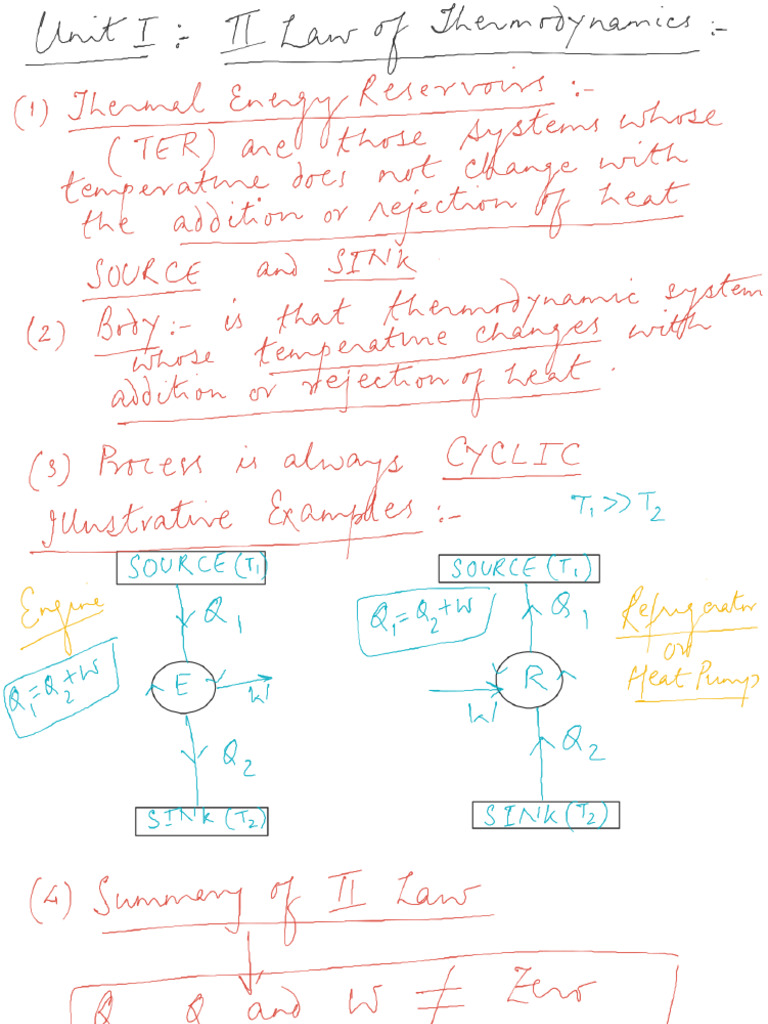 Unit I :- II Law of Thermodynamics :-
(1) Thermal Energy Reservoirs :-
(TER) are those systems whose
temperature does not change with
the addition or rejection of heat
SOURCE and SINK
(2) Body :- is that thermodynamic system
whose temperature changes with
addition or rejection of heat.
(3) Process is always CYCLIC
Illustrative Examples :-
T1 >> T2
SOURCE (T1)
Engine
Q1
Q1 = Q2 + W
E
W
Q2
SINK (T2)
SOURCE (T1)
Q1 = Q2 + W
Q1
Refrigerator
or
Heat Pump
R
W
Q2
SINK (T2)
(4) Summary of II Law
Q Q and W ≠ Zero